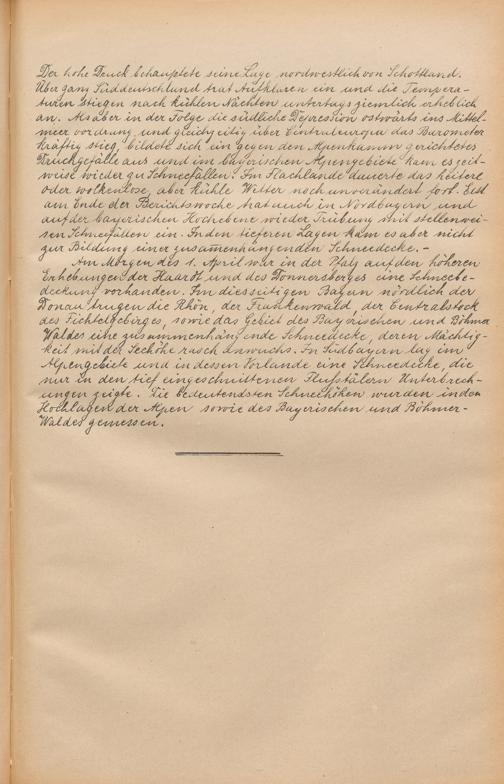 Der hohe Druck behauptete seine Lage nordwestlich von Schottland.
Über ganz Süddeutschland trat Aufklaren ein und die Tempera-
turen stiegen nach kühlen Nächten untertags ziemlich erheblich
an. Als aber in der Folge die südliche Depression ostwärts ins Mittel-
meer vordrang und gleichzeitig über Centraleuropa das Barometer
kräftig stieg, bildete sich ein gegen den Alpenkamm gerichtetes
Druckgefälle aus und im bayerischen Alpengebiete kam es zeit-
weise wieder zu Schneefällen. Im Flachlande dauerte das heitere
oder wolkenlose, aber kühle Wetter noch unverändert fort. Erst
am Ende der Berichtswoche trat auch in Nordbayern und
auf der bayerischen Hochebene wieder Trübung mit stellenwei-
sen Schneefällen ein. In den tieferen Lagen kam es aber nicht
zur Bildung einer zusammenhängenden Schneedecke. -
Am Morgen des 1. April war in der Pfalz auf den höheren
Erhebungen der Haardt und des Donnersberges eine Schneebe-
deckung vorhanden. Im diesseitigen Bayern nördlich der
Donau trugen die Rhön, der Frankenwald, der Centralstock
des Fichtelgebirges, sowie das Gebiet des Bayerischen und Böhmer
Waldes eine zusammenhängende Schneedecke, deren Mächtig-
keit mit der Seehöhe rasch anwuchs. In Südbayern lag im
Alpengebiete und in dessen Vorlande eine Schneedecke, die
nur in den tief eingeschnittenen Flußtälern Unterbrech-
ungen zeigte. Die bedeutendsten Schneehöhen wurden in den
Hochlagen der Alpen sowie des Bayerischen und Böhmer-
Waldes gemessen.